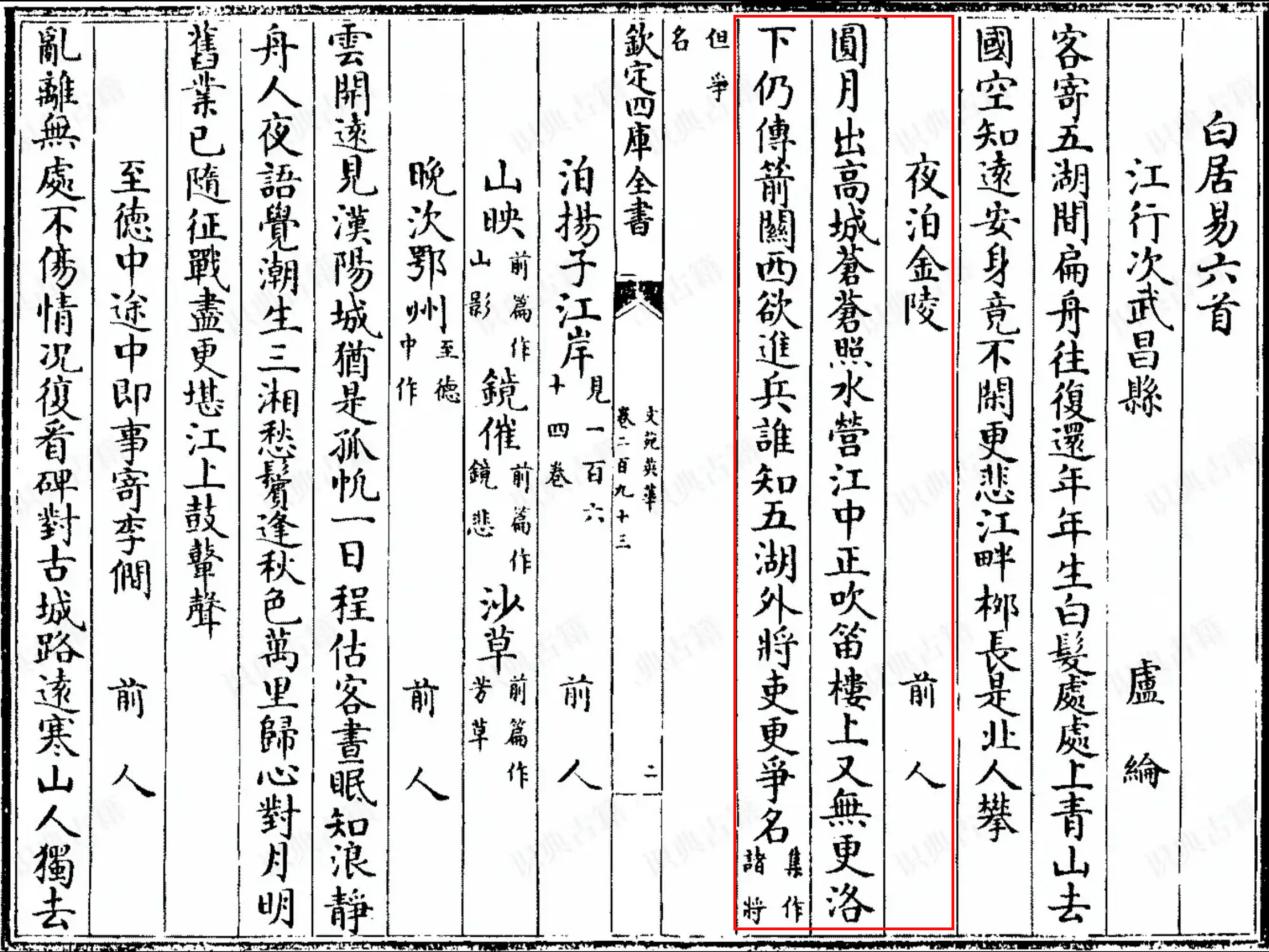 白居易六首
江行次武昌縣 盧綸
客寄五湖間扁舟往復還年年生白髮處處上青山去
國空知遠安身竟不閑更悲江畔柳長是北人攀
夜泊金陵 前人
圓月出高城蒼蒼照水營江中正吹笛樓上又無更洛
下仍傳箭關西欲進兵誰知五湖外將吏更爭名集作諸將
但爭名
欽定四庫全書 文苑英華卷二百九十三 二
泊揚子江岸見一百六十四卷 前人
山映前篇作山影 鏡催前篇作鏡悲 沙草前篇作芳草
晚次鄂州至德中作 前人
雲開遠見漢陽城猶是孤帆一日程估客晝眠知浪靜
舟人夜語覺潮生三湘愁鬢逢秋色萬里歸心對月明
舊業已隨征戰盡更堪江上鼓鼙聲
至德中途中即事寄李僩 前人
亂離無處不傷情況復看碑對古城路遠寒山人獨去